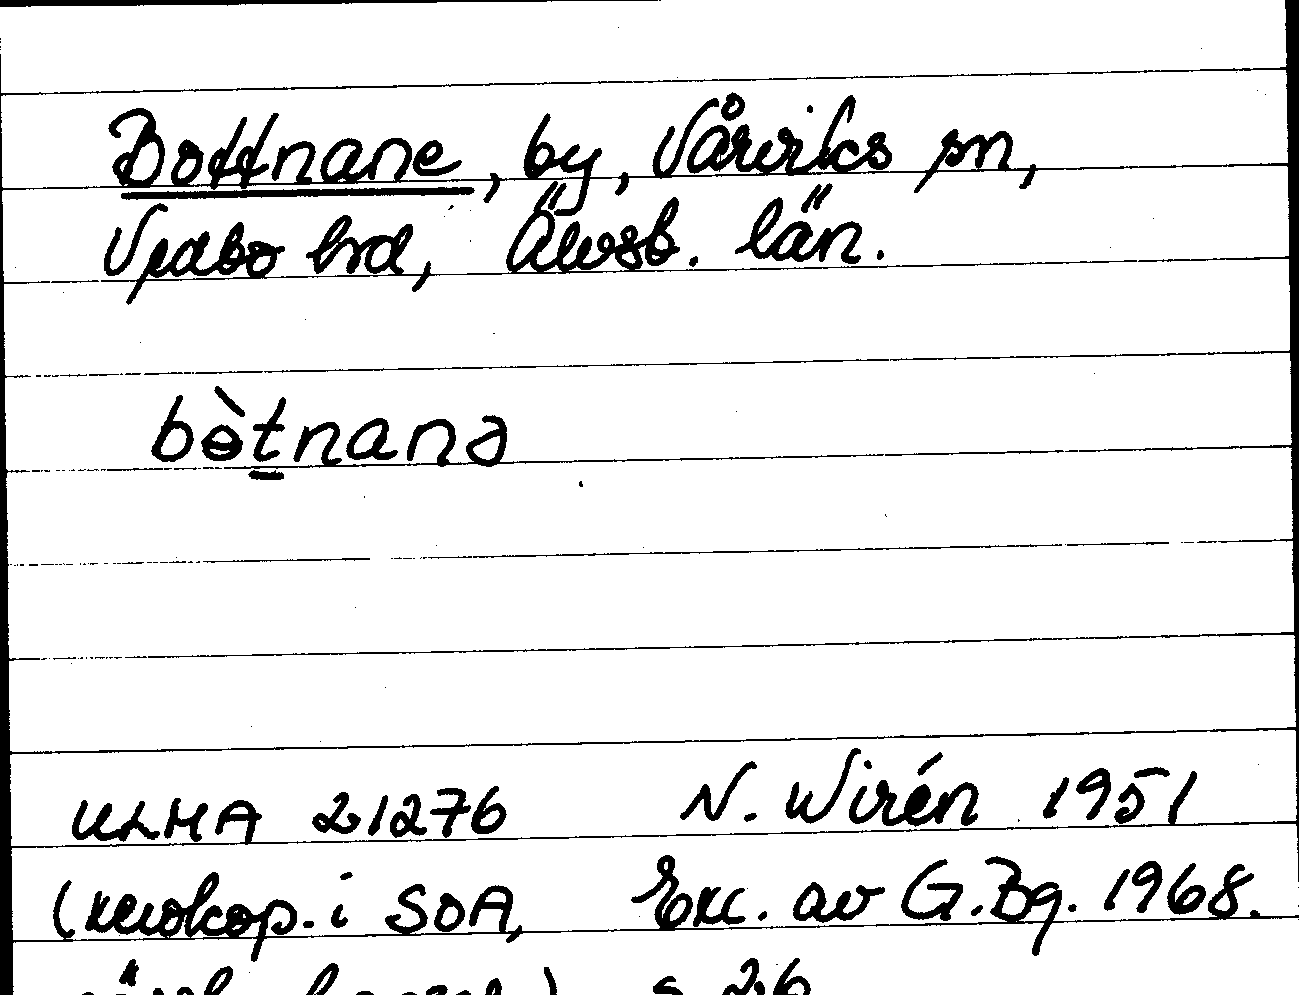 Bottnane, by, Vårviks sn,
Vedbo hd, Älvsb. län.
bɵ̀t̠nanə
ULMA 21276 N. Wirén 1951
(xerokop. i SOA, Exc. av G.Bg. 1968.
s 26